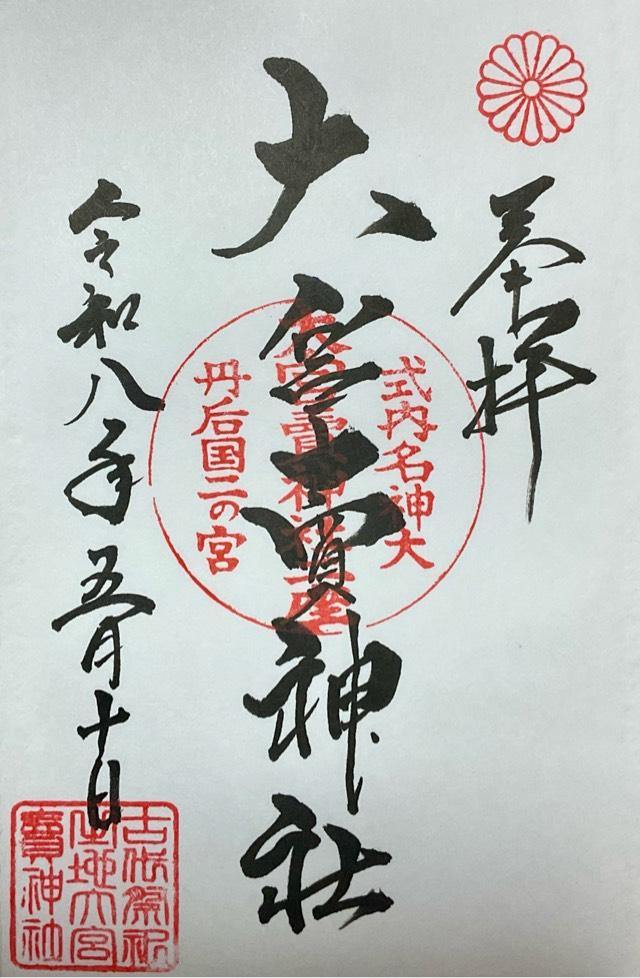 奉拝
大宮売神社
式内名神大
大宮賣神社二座
丹后国二の宮
令和八年五月十日
古代祭祀
之地大宮
賣神社